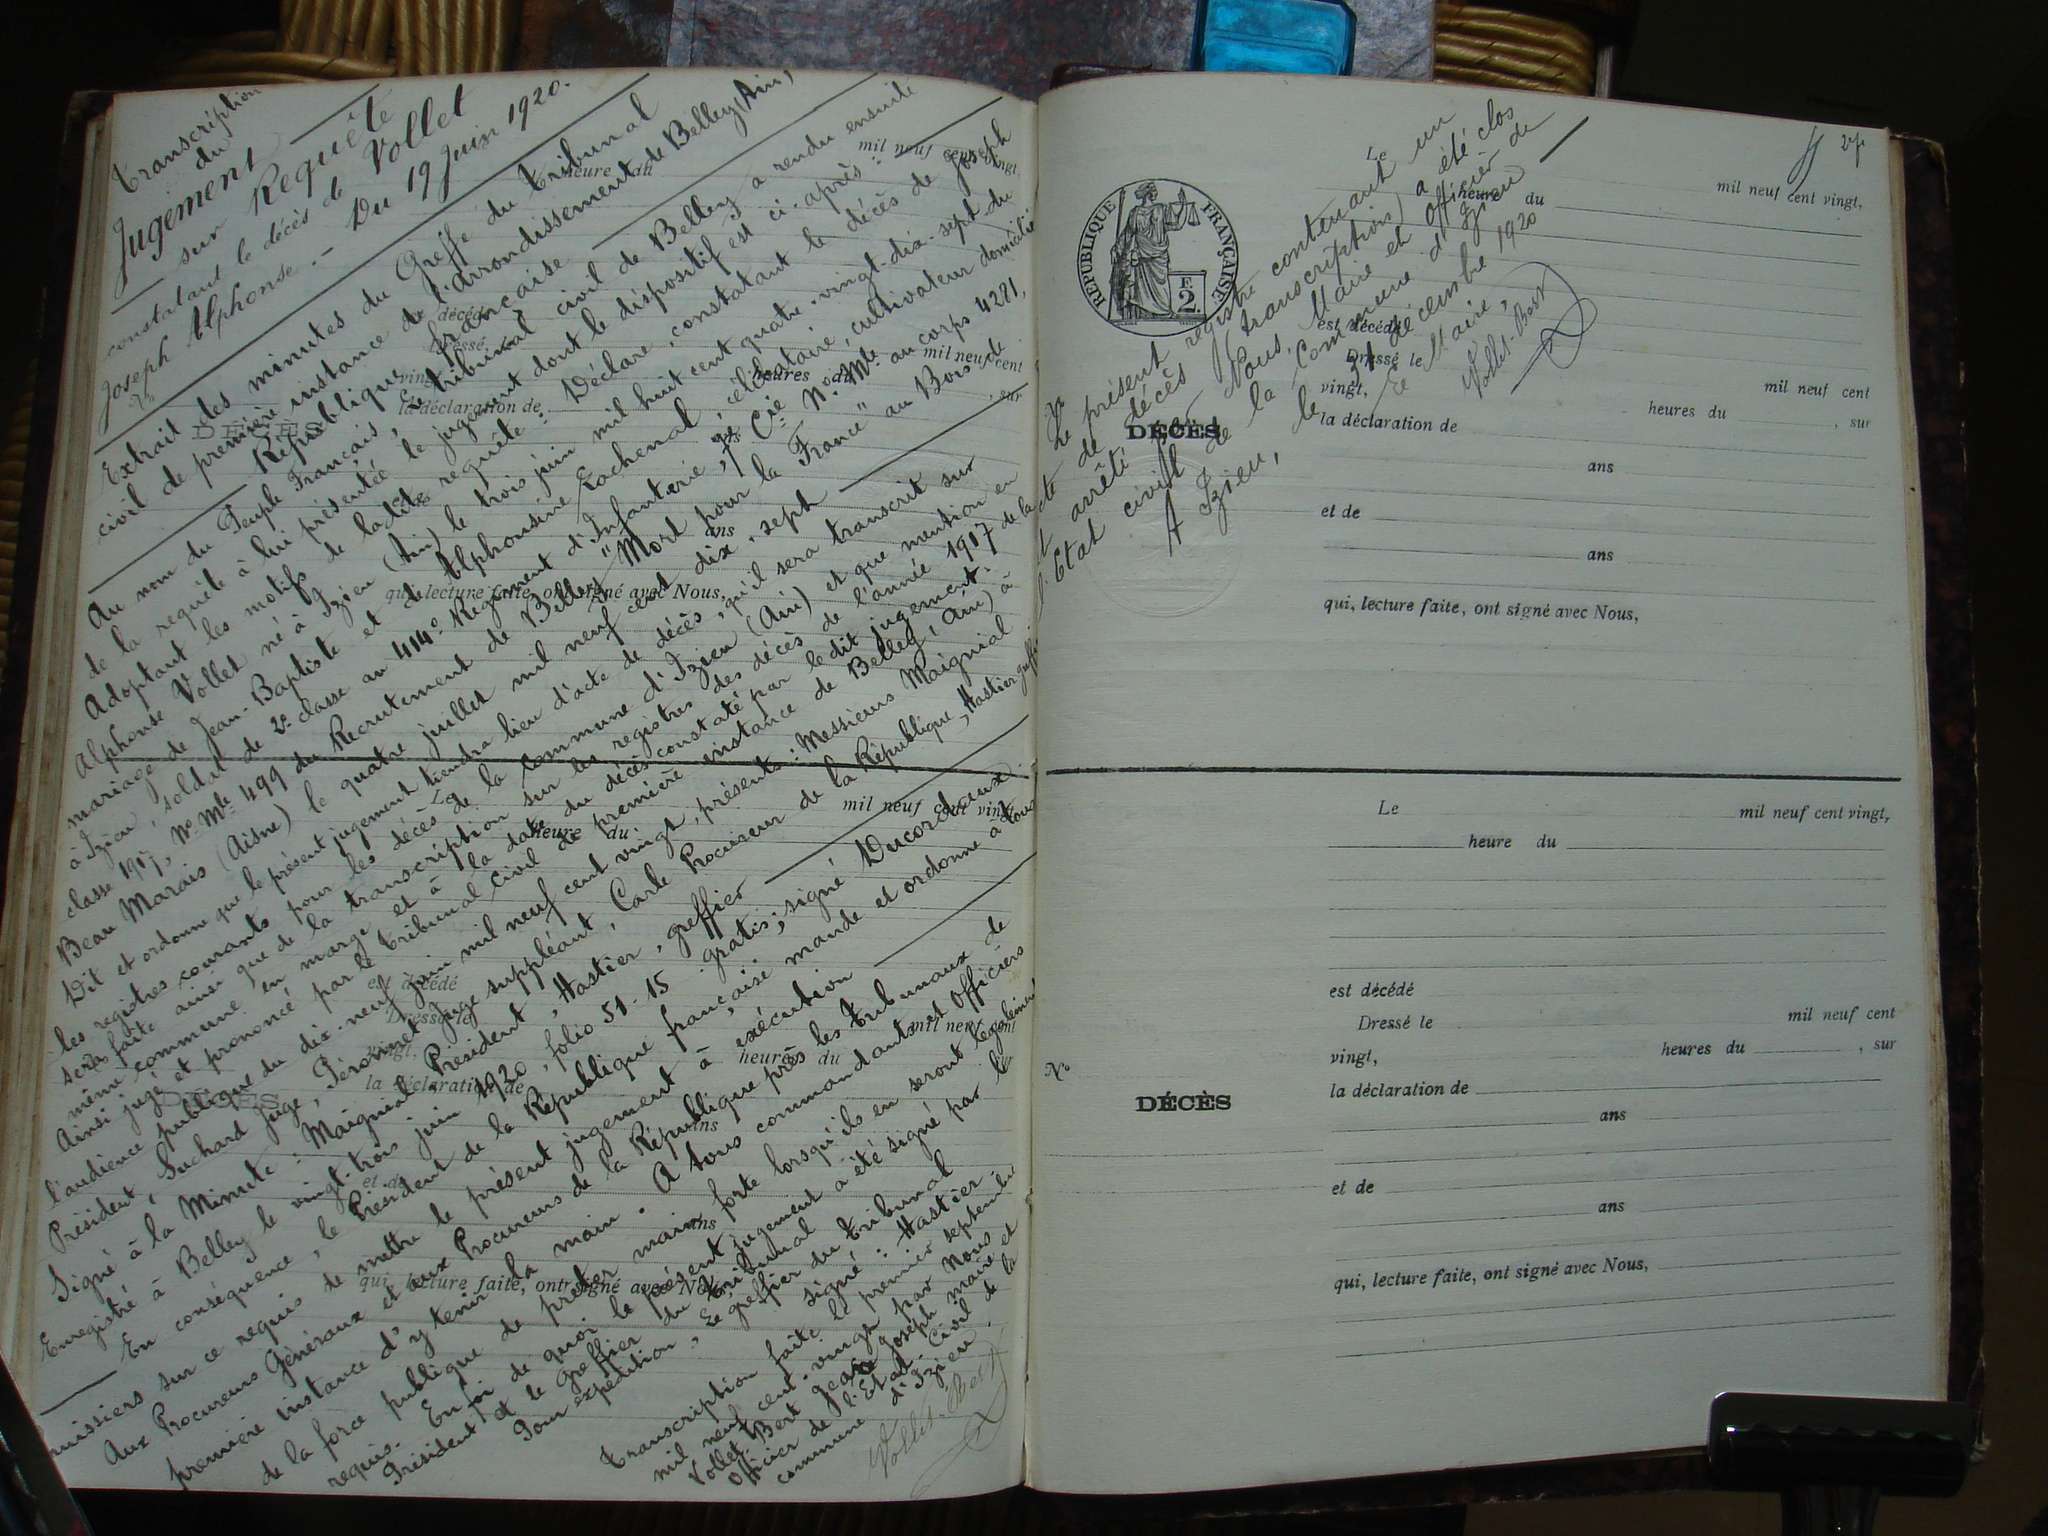 Transcription
du
Jugement
sur Requête
constatant le décès de Vollet
Joseph Alphonse. - Du 19 Juin 1920.
Extrait des minutes du Greffe du Tribunal
civil de première instance de l'arrondissement de Belley (Ain)
République française
Au nom du Peuple Français, Le tribunal civil de Belley a rendu ensuite
de la requête à lui présentée le jugement dont le dispositif est ci-après :
Adoptant les motifs de ladite requête : Déclare, constatant le décès de Joseph
Alphonse Vollet né à Izieu (Ain) le trois juin mil huit cent quatre-vingt-dix-sept du
mariage de Jean-Baptiste et de Alphonsine Lachenal, célibataire, cultivateur domicilié
à Izieu, soldat de 2e classe au 414e Régiment d'Infanterie, Cie No Mle au corps 4281,
classe 1917, No Mle 499 du Recrutement de Belley "Mort pour la France" au Bois de
Beau Marais (Aisne) le quatre juillet mil neuf cent dix-sept
Dit et ordonne que le présent jugement tiendra lieu d'acte de décès, qu'il sera transcrit sur
les registres courants pour les décès de la commune d'Izieu (Ain) et que mention en
sera faite ainsi que de la transcription sur les registres des décès de l'année 1917 de la
même commune en marge et à la date du décès constaté par le dit jugement.
Ainsi jugé et prononcé par le tribunal civil de première instance de Belley (Ain) à
l'audience publique du dix-neuf juin mil neuf cent vingt, présents : Messieurs Maignial
Président, Suchard juge, Peronnet juge suppléant, Carle Procureur de la République, Hastier greffier
Signé à la Minute : Maignial, Président, Hastier, greffier
Enregistré à Belley le vingt-trois juin 1920, folio 51-15 gratis; signé Ducordeaux.
En conséquence, le Président de la République française mande et ordonne à tous
huissiers sur ce requis de mettre le présent jugement à exécution
Aux Procureurs Généraux et aux Procureurs de la République près les tribunaux de
première instance d'y tenir la main. A tous commandants et Officiers
de la force publique de prêter main forte lorsqu'ils en seront légalement
requis. En foi de quoi le présent jugement a été signé par le
Président et le Greffier du tribunal
Pour expédition, Le greffier du tribunal
signé : Hastier
Transcription faite le premier septembre
mil neuf cent-vingt par Nous
Vollet-Bert Jean Joseph maire et
Officier de l'Etat-Civil de la
commune d'Izieu.
Vollet-Bert
mil neuf cent vingt,
heure du
est décédé
Dressé le
mil neuf cent
vingt,
heures du
, sur
la déclaration de
DÉCÈS
ans
qui, lecture faite, ont signé avec Nous,
Le
mil neuf cent vingt,
heure du
est décédé
Dressé le
mil neuf cent
vingt,
heures du
sur
la déclaration de
DÉCÈS
ans
et de
ans
qui, lecture faite, ont signé avec Nous,
Le présent registre contenant un
acte de décès (transcription) a été clos
et arrêté par Nous, Maire et Officier de
l'Etat civil de la Commune d'Izieu
A Izieu, le 31 décembre 1920
Le Maire,
Vollet-Bert
RÉPUBLIQUE FRANÇAISE
E
2.
Le
mil neuf cent vingt,
heure du
est décédé
Dressé le
mil neuf cent
vingt,
heures du
, sur
No
la déclaration de
DÉCÈS
ans
et de
ans
qui, lecture faite, ont signé avec Nous,
Le
mil neuf cent vingt,
heure du
est décédé
Dressé le
mil neuf cent
vingt,
heures du
, sur
No
la déclaration de
DÉCÈS
ans
et de
ans
qui, lecture faite, ont signé avec Nous,